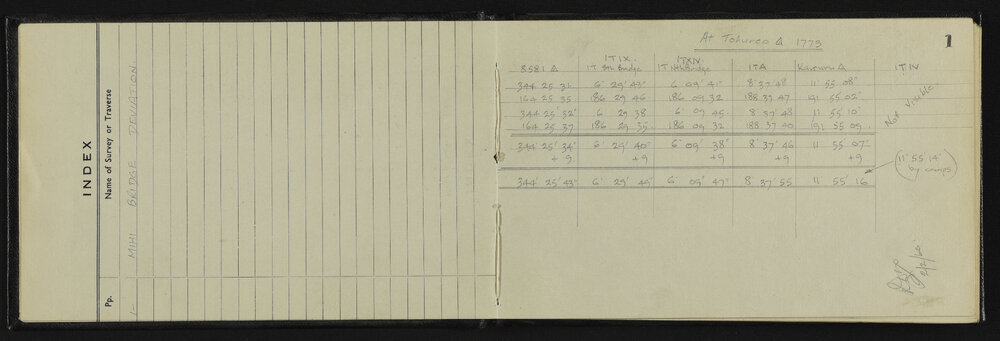 INDEX
Pp. Name of Survey or Traverse
1- MIHI BRIDGE DEVIATION
1
At Tohureo Δ 1773
ITIX. ITXIV
8581 Δ IT Sth Bridge IT Nth Bridge ITA Kaiwaru Δ ITIV
344 25 31 6° 29' 42" 6 09' 41" 8 37 48 11 55 08"
164 25 35 186 29 46 186 09 32 188 37 47 191 55 02"
344 25' 32" 6 29 38 6 09 45 8 37 48 11 55 10"
164 25 37 186 29 35 186 09 32 188 37 40 191 55 09
344° 25' 34" 6° 29' 40" 6° 09' 38" 8° 37' 46 11 55 07"
+ 9 +9 +9 +9 +9
344° 25' 43" 6° 29' 49" 6° 09' 47" 8 37' 55 11 55' 16
Not Visible
(11° 55' 14"
by comps)